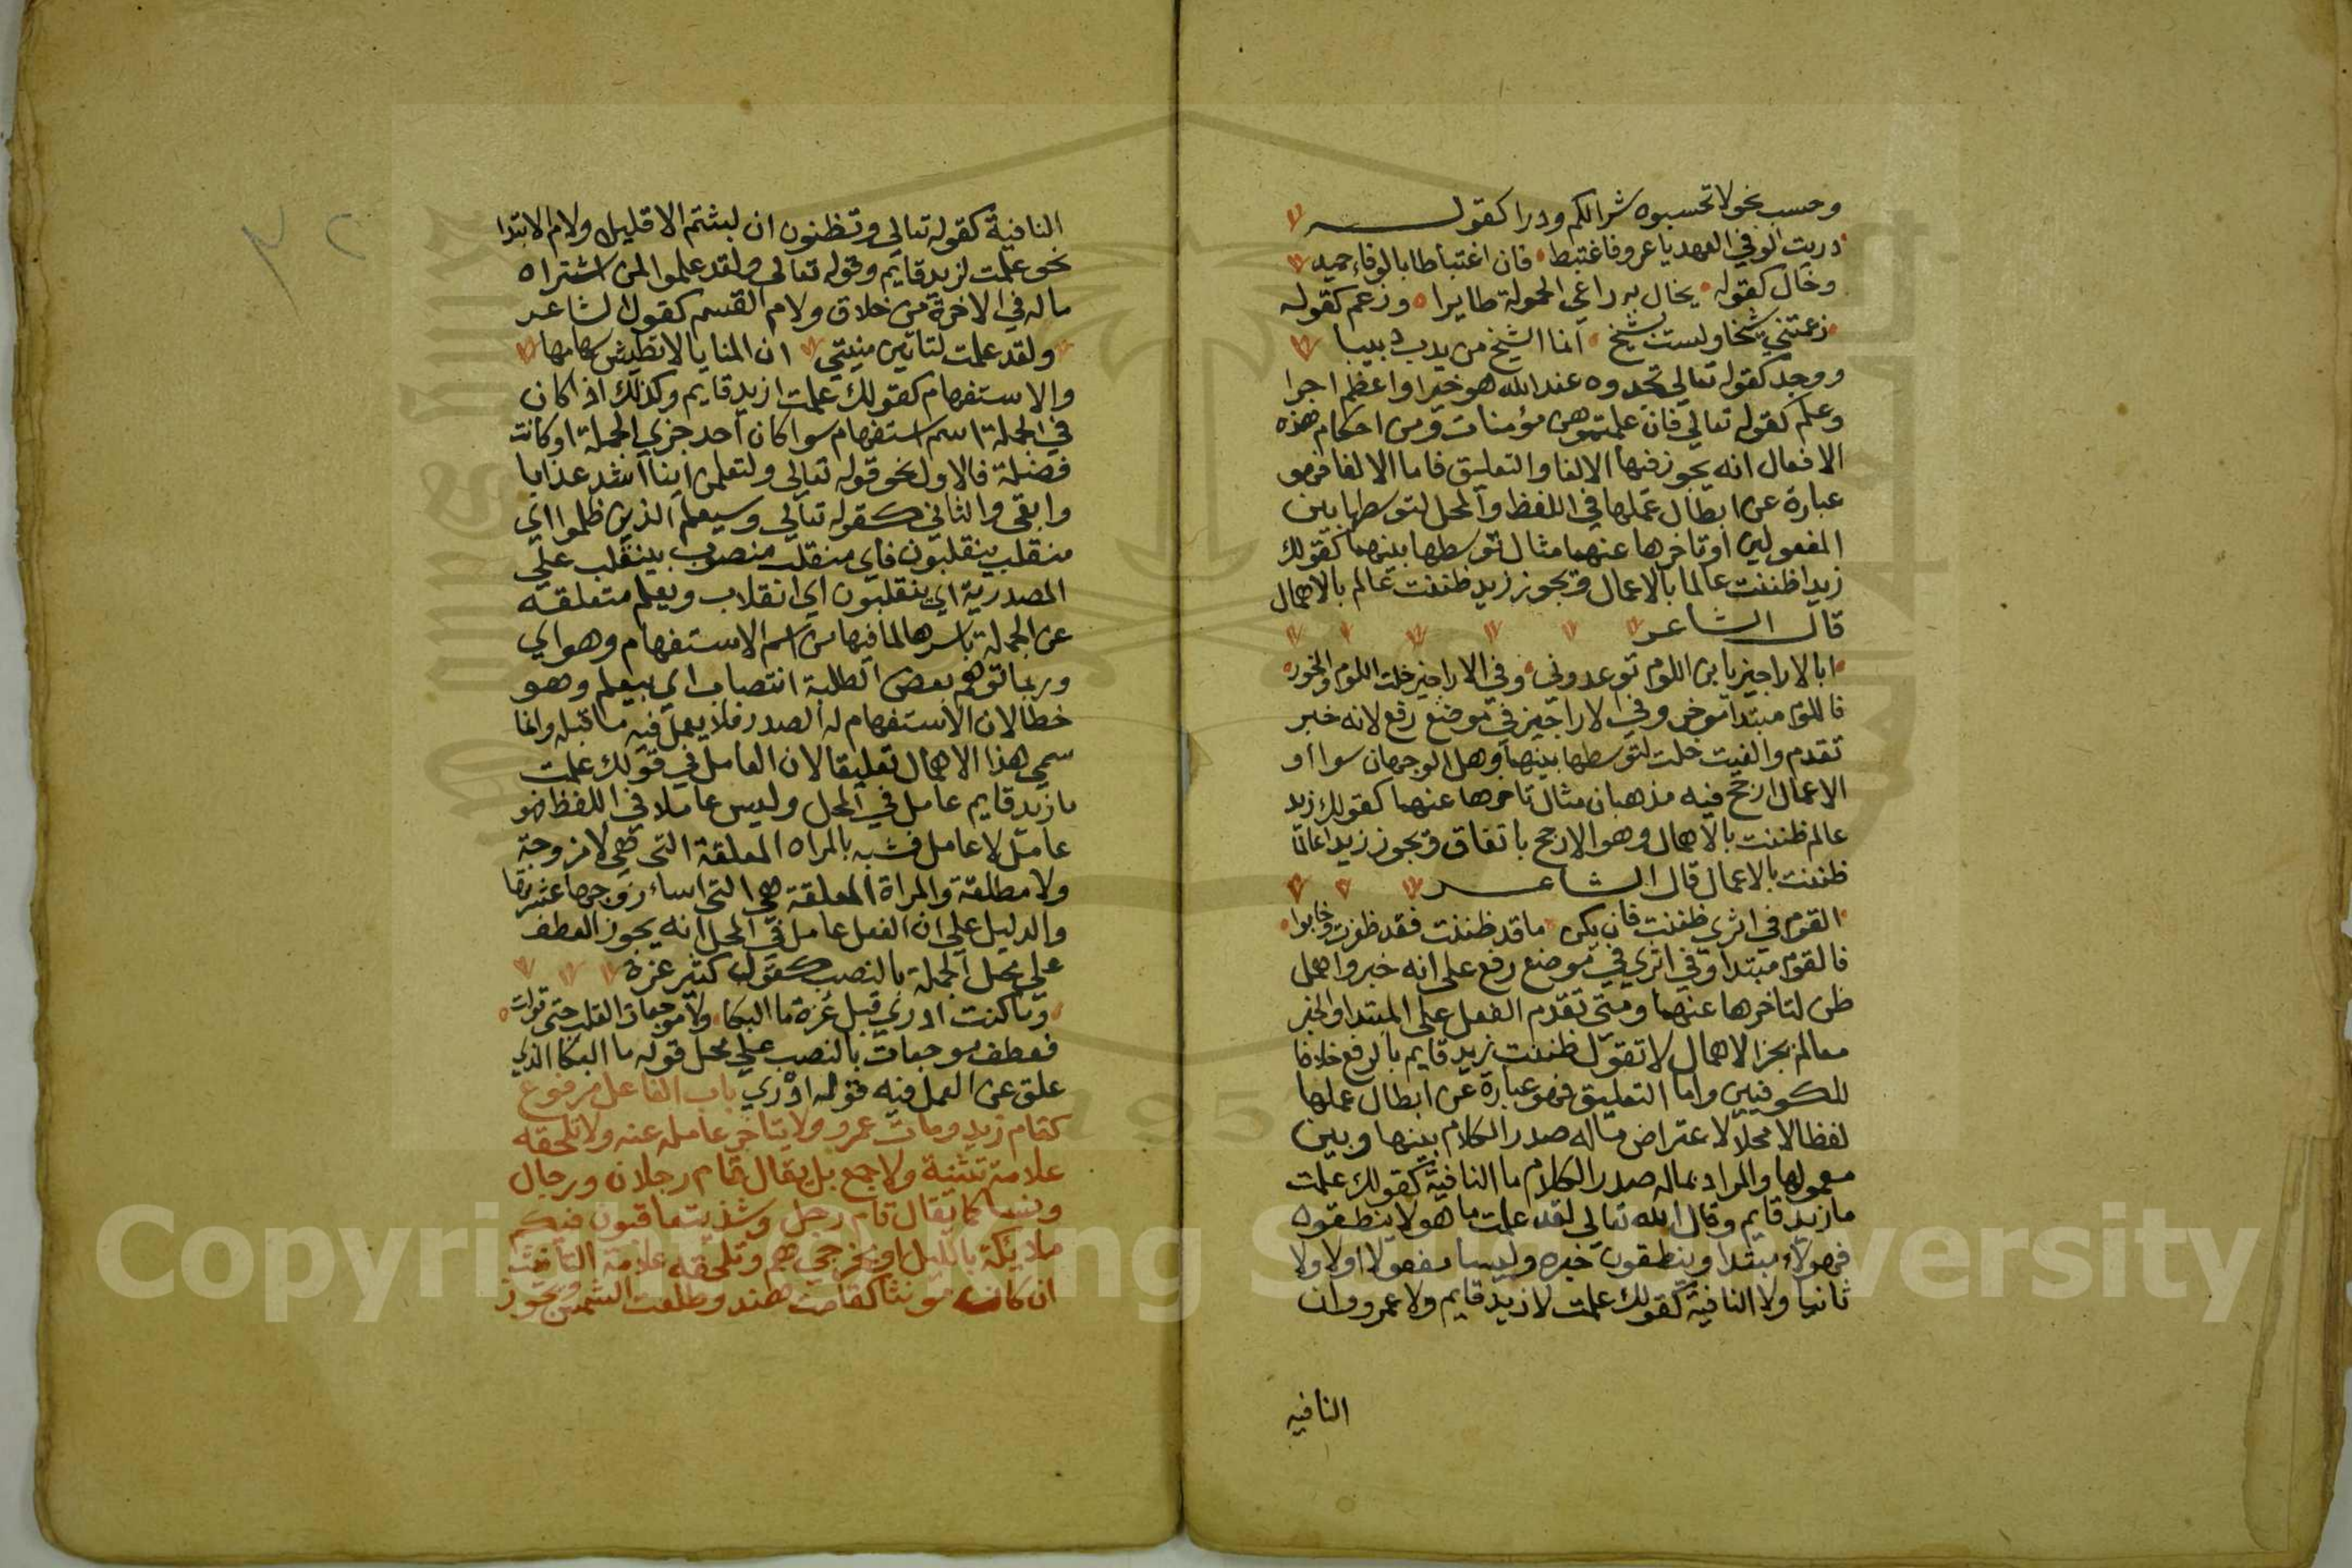 وحسب نحو لا تحسبوه شرا لكم ودرا كقولـــه
دريت الوفي العهد يا عرو فاغتبط فان اغتباطا بالوفاء حميد
وخال كقوله يخال به راعي الحمولة طايرا وزعم كقوله
زعمتني شيخا ولست بشيخ انما الشيخ من يدب دبيبا
ووجد كقوله تعالي تجدوه عند الله هو خيرا واعظم اجرا
وعلم كقوله تعالي فان علمتموهن مؤمنات ومن احكام هذه
الافعال انه يجوز فيها الالغا والتعليق فاما الالغا فهو
عبارة عن ابطال عملها في اللفظ والمحل لتوسطها بين
المفعولين او تاخرها عنهما مثال توسطها بينهما كقولك
زيدا ظننت عالما بالاعمال ويجوز زيد ظننت عالم بالاهمال
قال الشاعر
ابالاراجيز يا ابن اللوم توعدوني وفي الاراجيز خلت اللوم والخور
فاللوم مبتدا موخر وفي الاراجيز في موضع رفع لانه خبر
تقدم والغيت خلت لتوسطها بينهما وهل الوجهان سوا او
الاعمال ارجح فيه مذهبان مثال تاخرها عنهما كقولك زيد
عالم ظننت بالاهمال وهو الارجح باتفاق ويجوز زيدا عالما
ظننت بالاعمال قال الشاعـــر
القوم في اثري ظننت فان يكن ما قد ظننت فقد ظفرت وخابوا
فالقوم مبتدا وفي اثري في موضع رفع على انه خبر واهمل
ظن لتاخرها عنهما ومتى تقدم الفعل على المبتدا والخبر
معا لم يجز الاهمال لا تقول ظننت زيد قايم بالرفع خلافا
للكوفيين واما التعليق فهو عبارة عن ابطال عملها
لفظا لا محلا لاعتراض ماله صدر الكلام بينها وبين
معمولها والمراد بماله صدر الكلام ما النافية كقولك علمت
ما زيد قايم وقال الله تعالي لقد علمت ما هولا ينطقون
فهولاء مبتدا وينطقون خبره وليسا مفعولا اولا ولا
ثانيا ولا النافية كقولك علمت لا زيد قايم ولا عمرو وان
النافيه
النافية كقوله تعالي وتظنون ان لبثتم الا قليلا ولام الابتدا
نحو علمت لزيد قايم وقوله تعالى ولقد علموا لمن اشتراه
ماله في الاخرة من خلاق ولام القسم كقول الشاعر
ولقد علمت لتاتين منيتي ان المنايا لا تطيش سهامها
والاستفهام كقولك علمت ازيد قايم وكذلك اذا كان
في الجملة اسم استفهام سوا كان احد جزي الجملة او كانت
فضلة فالاول نحو قوله تعالى ولتعلمن اينا اشد عذابا
وابقى والثاني كقوله تعالى وسيعلم الذين ظلموا اي
منقلب ينقلبون فاي منقلب منصوب بينقلب علي
المصدرية اي ينقلبون اي انقلاب ويعلم متعلقه
عن الجملة باسرها لما فيها من اسم الاستفهام وهو اي
وربما توهم بعض الطلبة انتصاب اي بيعلم وهو
خطا لان الاستفهام له الصدر فلا يعمل فيه ما قبله وانما
سمي هذا الاهمال تعليقا لان العامل في قولك علمت
ما زيد قايم عامل في المحل وليس عاملا في اللفظ فهو
عامل لا عامل فشبه بالمراه المعلقة التي هي لا مزوجة
ولا مطلقة والمراة المعلقة هي التي اساء زوجها عشرتها
والدليل علي ان الفعل عامل في المحل انه يجوز العطف
علي محل الجملة بالنصب كقول كثير عزة
وما كنت ادري قبل عزة ما البكا ولا موجعات القلب حتى تولت
فعطف موجعات بالنصب علي محل قوله ما البكا الذي
علق عن العمل فيه قوله ادري باب الفاعل مرفوع
كقام زيد ومات عمرو ولا يتاخر عامله عنه ولا تلحقه
علامة تثنية ولا جمع بل يقال قام رجلان ورجال
ونسا كما يقال قام رجل وشذ يتعاقبون فيكم
ملايكة بالليل او مخرجي هم وتلحقه علامة التانيث
ان كان مونثا كقامت هند وطلعت الشمس ويجوز
Copyright © King Saud University